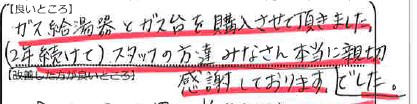 【良いところ】
ガス給湯器とガス台を購入させて頂きました。
(2年続けて)スタッフの方達みなさん本当に親切
でした。
【改善した方が良いところ】
感謝しております。